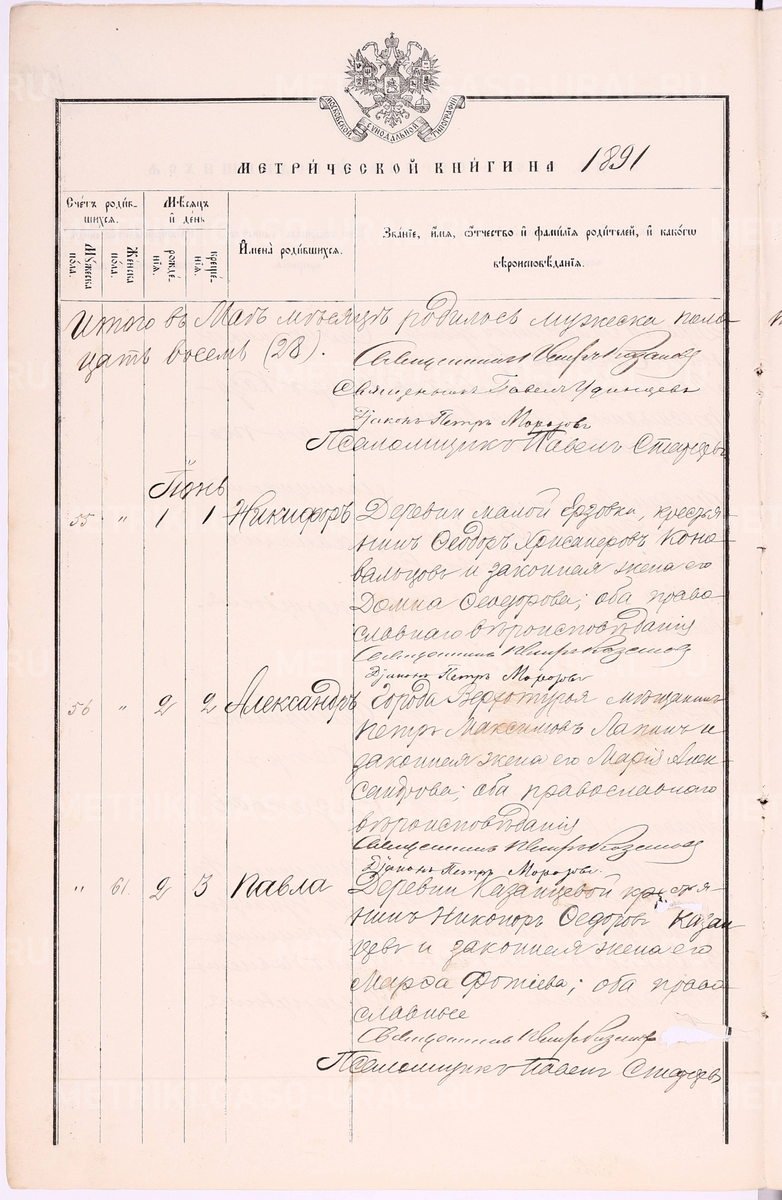 МОСКОВСКОЙ СѴНОДАЛЬНОЙ ТИПОГРАФІИ
МЕТРИ́ЧЕСКОЙ КНИ́ГИ НА 1891
Сче́тъ роди́в-
шихся.
Му́жеска
по́ла.
Же́нска
по́ла.
Мѣ́сяцъ
и҆ де́нь
рожде́-
нїѧ.
креще́-
нїѧ.
И҆мена̀ роди́вшихсѧ.
Зва́нїе, и҆́мѧ, ѻ҆́тчество и҆ фамⷧ҇їѧ роди́телей, и҆ како́гѡ
вѣроисповѣ́данїѧ.
Итого въ Маѣ мѣсяцѣ родилось мужеска пола
цать восемь (28).
Священникъ Петръ Казанск
Священникъ Павелъ Удинцевъ
Діаконъ Петръ Морозовъ
Псаломщикъ Павелъ Старцевъ
Іюнь
55 " 1 1 Никифоръ Деревни малой Ерзовки, крестья-
нинъ Ѳеодоръ Хрисанфовъ Коно-
вальцовъ и законная жена его
Домна Ѳеодорова; оба право-
славнаго вѣроисповѣданія
Священникъ Петръ Казанск
Діаконъ Петръ Морозовъ
56 " 2 2 Александръ Города Верхотурья мѣщанинъ
Петръ Максимовъ Лапинъ и
законная жена его Марія Алек-
сандрова; оба православнаго
вѣроисповѣданія
Священникъ Петръ Казанск
Діаконъ Петръ Морозовъ
" 61 2 3 Павла Деревни Казанцевой крестья-
нинъ Никоноръ Ѳедоровъ Казан
цевъ и законная жена его
Марѳа Фотіева; оба право-
славные
Священникъ Петръ
Псаломщикъ Павелъ Старцевъ